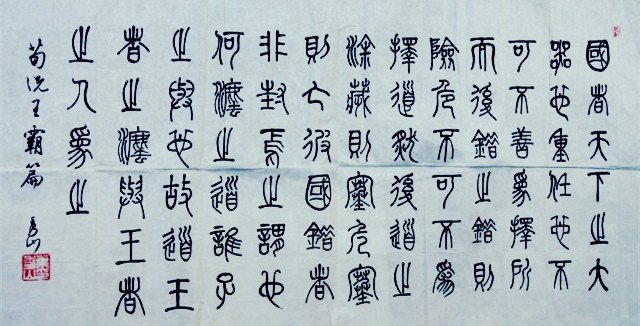 國者天下之大
器也重任也不
可不善為擇所
而後錯之錯則
險危不可不為
擇道然後道之
涂薉則塞危塞
則亡彼國錯者
非封焉之謂也
何灋之道誰子
之與也故道王
者之灋與王者
之人為之
荀况王霸篇